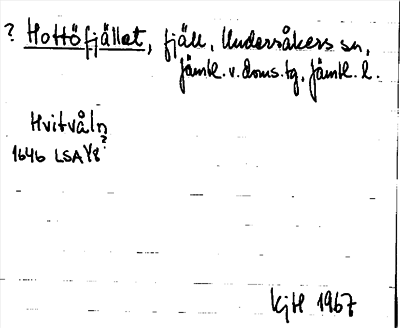 ? Hottöfjället, fjäll, Undersåkers sn,
Jämtl. v. doms. tg, Jämtl. l.
Hvitvåln
?
1646 LSA Y8
KjH 1967